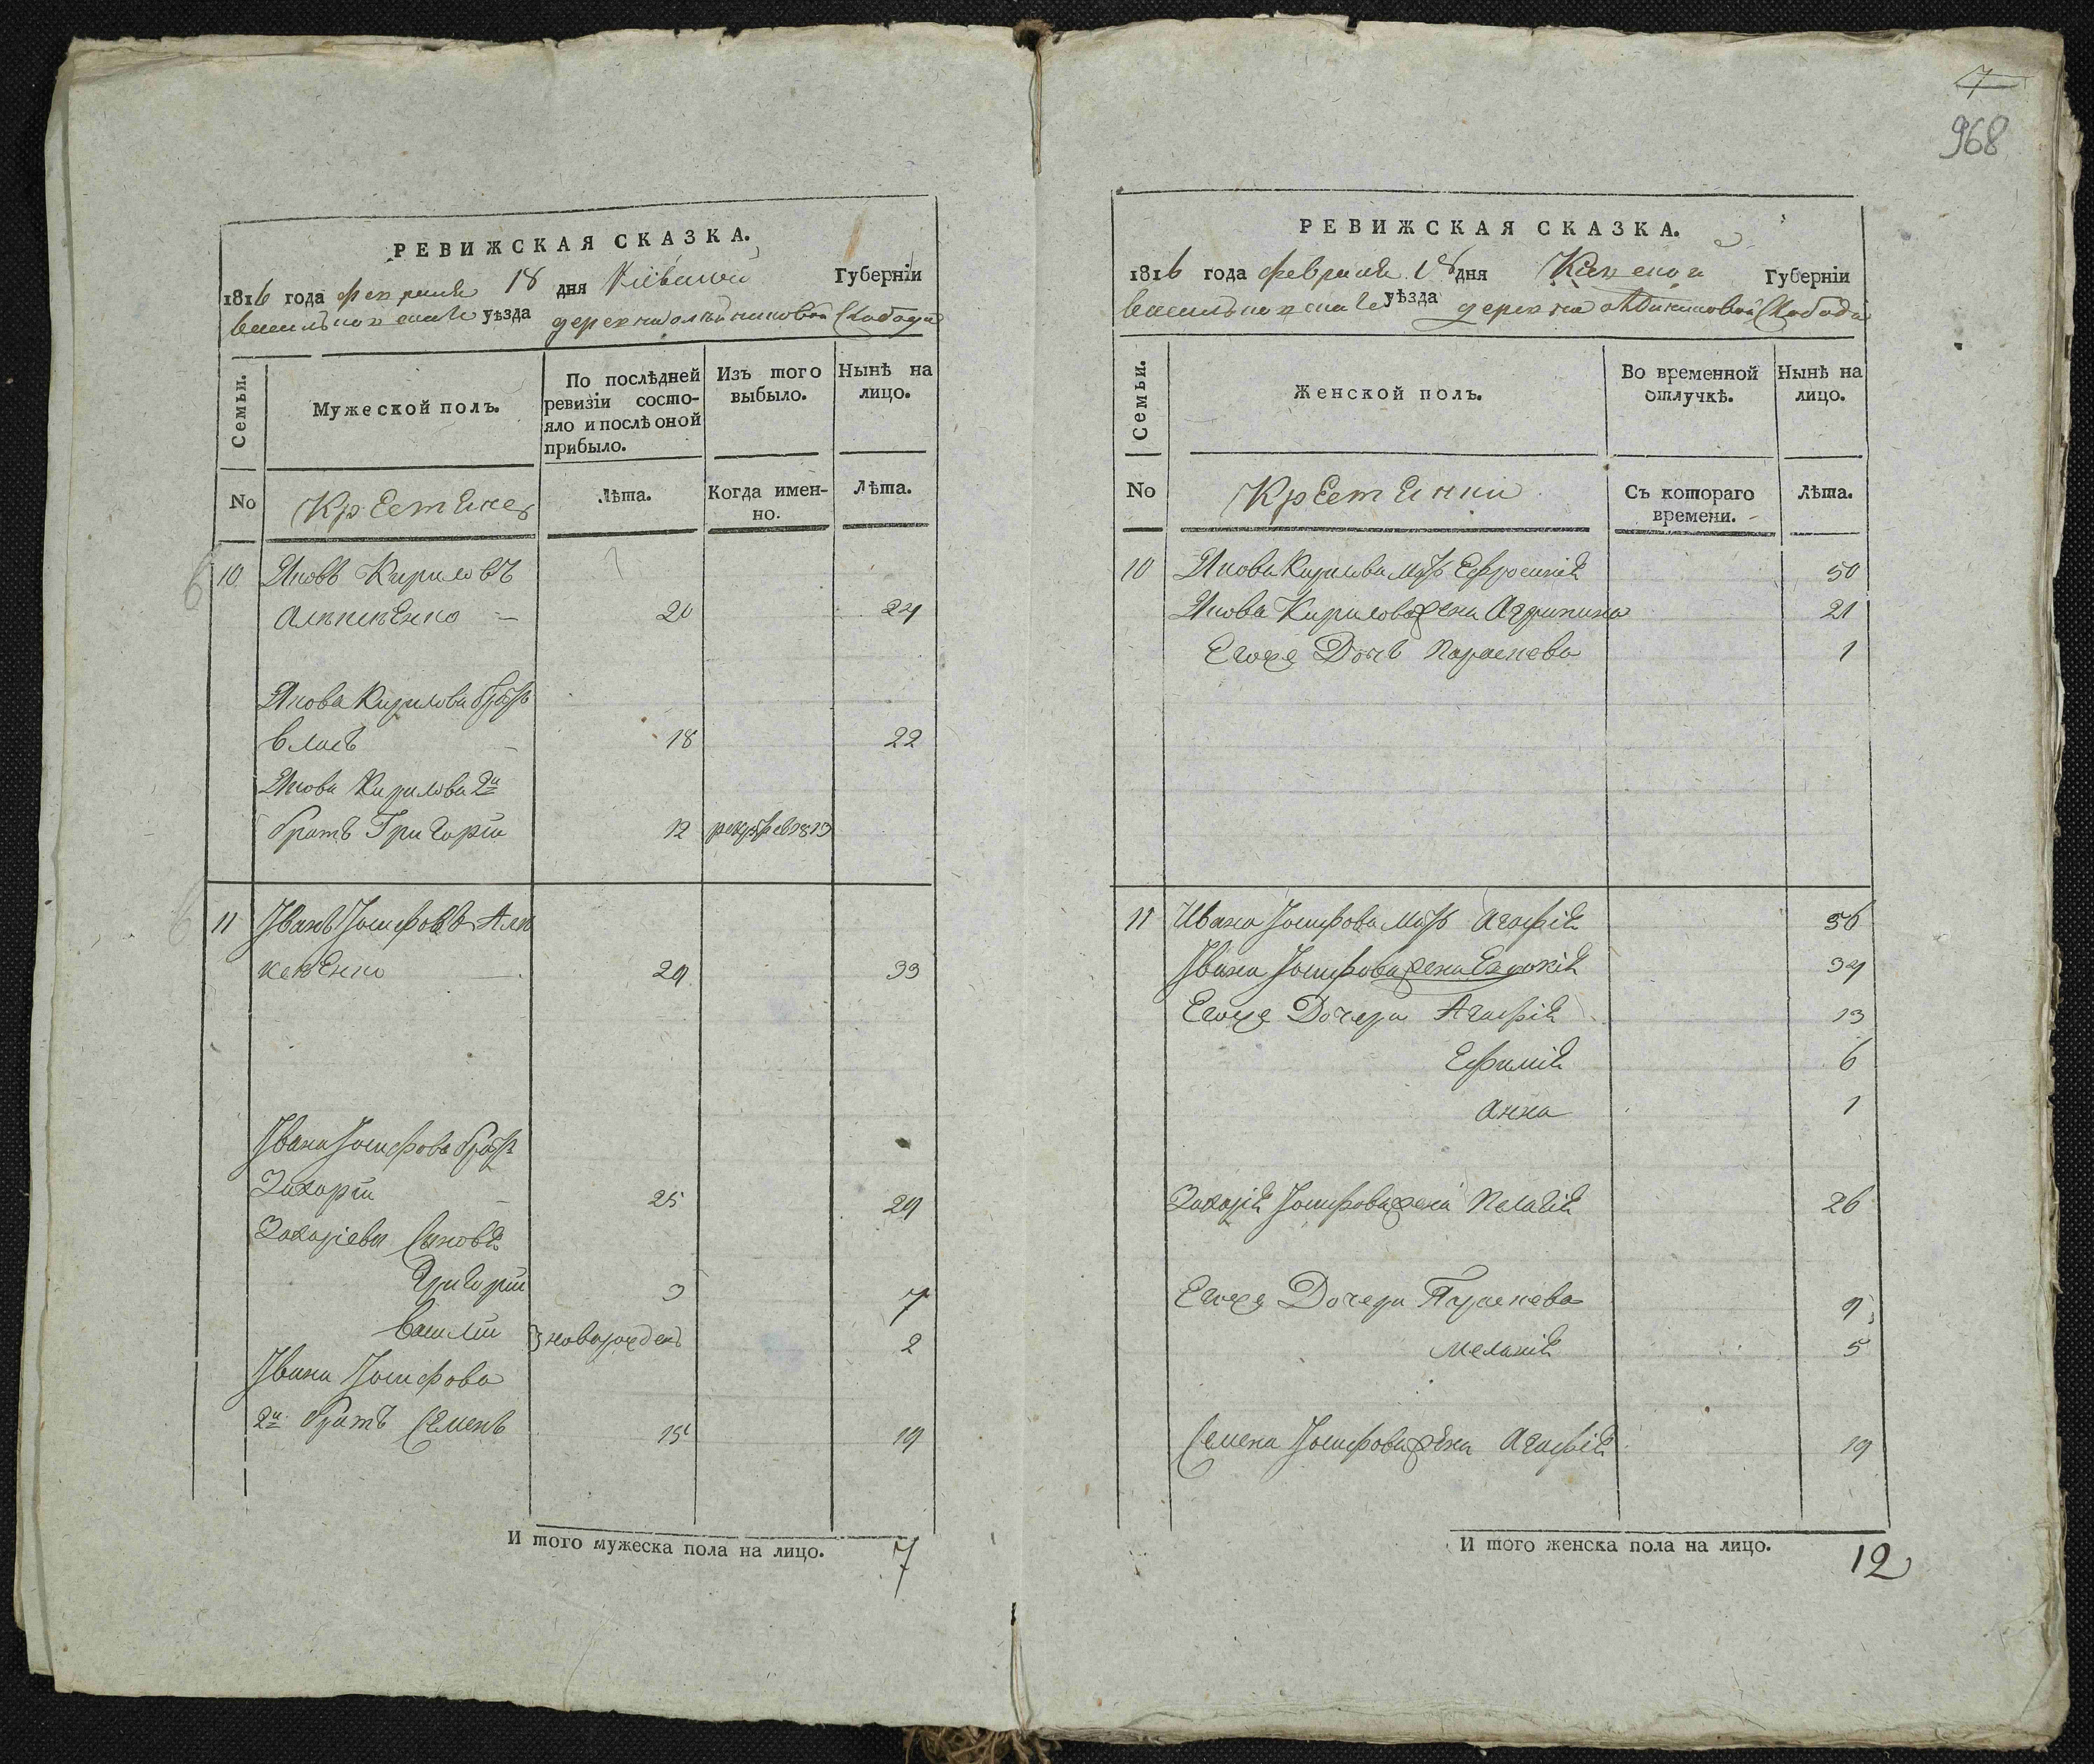 РЕВИЖСКАЯ СКАЗКА.
1816 года февраля 18 дня Кіевской Губерніи
васильковскаго уѣзда деревни Слободы
Семьи.
Мужеской полъ.
По послѣдней ревизіи состо-
яло и послѣ оной
прибыло.
Изъ того
выбыло.
Нынѣ на
лицо.
No
Крестяне
Лѣта.
Когда имен-
но.
Лѣта.
10 Яковъ Кириловъ
20 24
Якова Кирилова братъ
власъ 18 22
Якова Кирилова 2й
братъ Григорій 12 1813
11 Іванъ Іосифовъ
29 33
Івана Іосифова братъ
Захарій 25 29
Захаріевы Сыновя
Григорій 3 7
василій новорожден 2
Івана Іосифова
2й братъ Семенъ 15 19
И того мужеска пола на лицо. 7
7
968
РЕВИЖСКАЯ СКАЗКА.
1816 года февраля 18 дня Кіевской Губерніи
васильковскаго уѣзда деревни Слободы
Семьи.
Женской полъ.
Во временной
отлучкѣ.
Нынѣ на
лицо.
No
Крестянки
Съ котораго
времени.
Лѣта.
10 Якова Кирилова мать Ефросинія 50
Якова Кирилова жена Агрипина 21
Егоже Дочь Параскева 1
11 Ивана Іосифова мать Агафія 56
Івана Іосифова жена Евдокія 34
Егоже Дочери Агафія 13
Ефимія 6
Анна 1
Захарія Іосифова жена Пелагія 26
Егоже Дочери Параскева 9
Меланія 5
Семена Іосифова жена Агафія 19
И того женска пола на лицо. 12